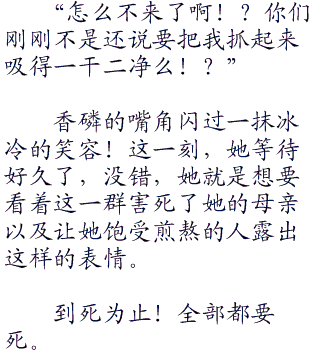 “怎么不来了啊！？你们
刚刚不是还说要把我抓起来
吸得一干二净么！？”
香磷的嘴角闪过一抹冰
冷的笑容！这一刻，她等待
好久了，没错，她就是想要
看着这一群害死了她的母亲
以及让她饱受煎熬的人露出
这样的表情。
到死为止！全部都要
死。